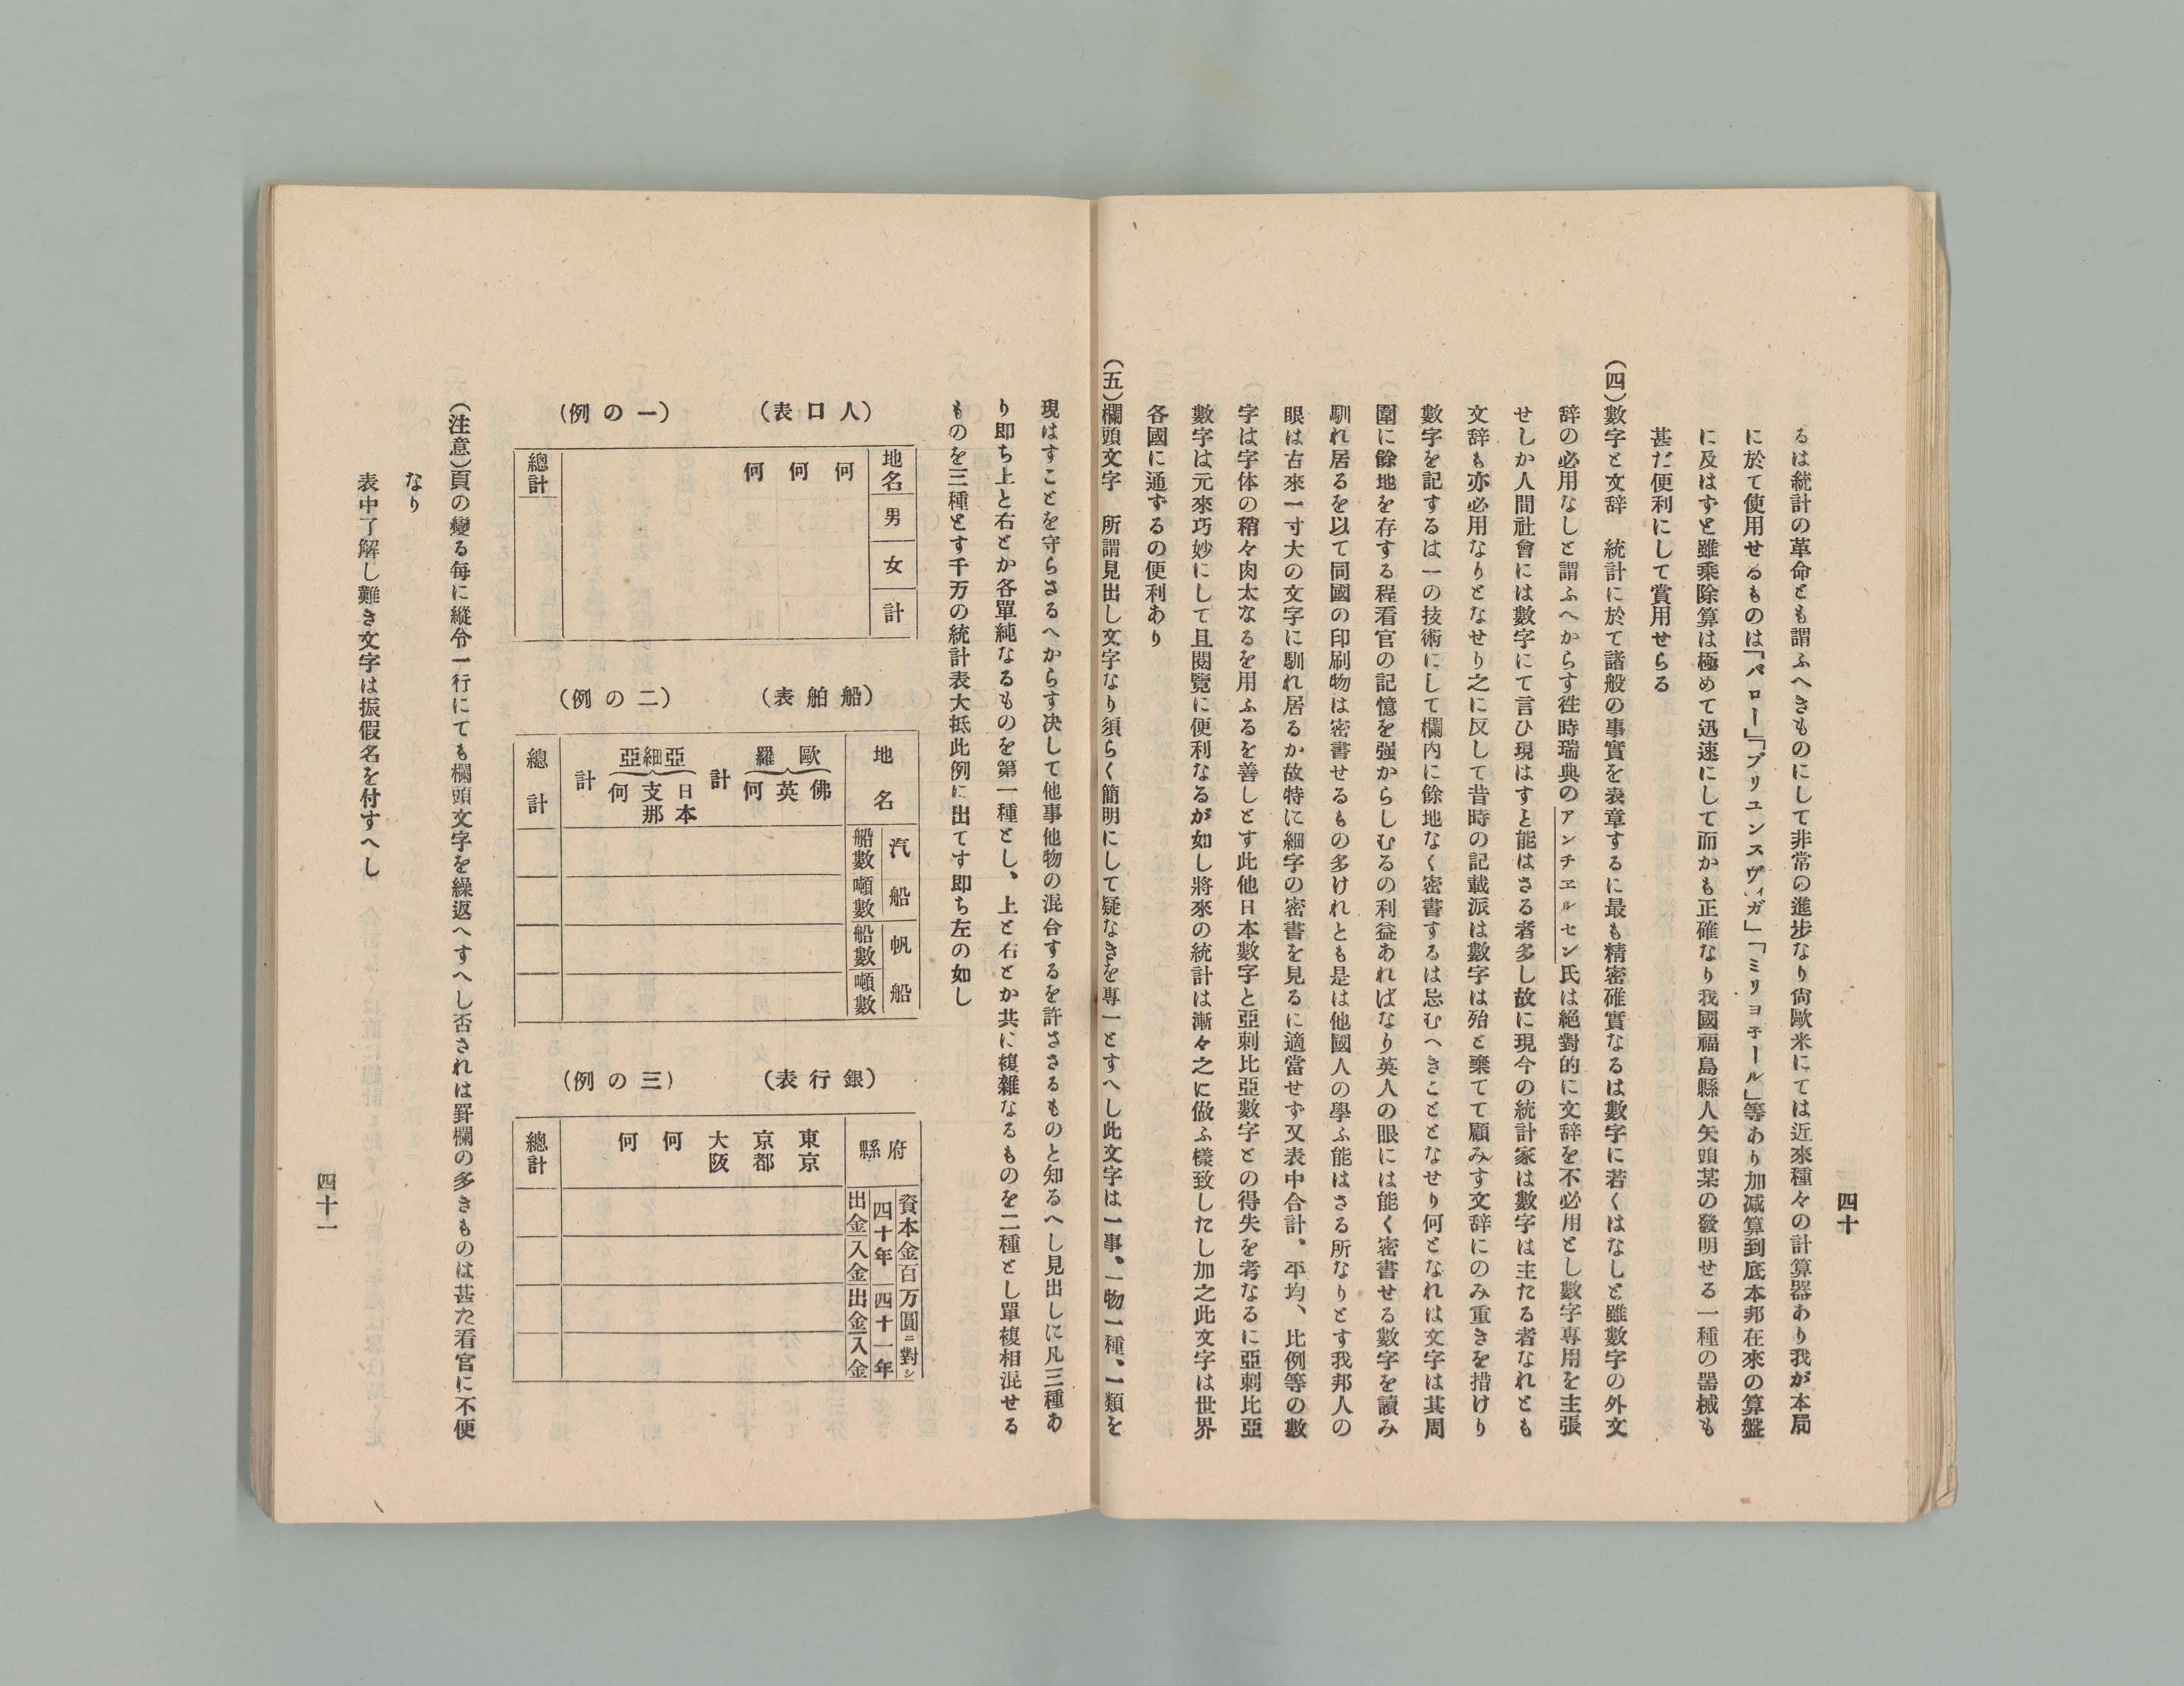 四十
るは統計の革命とも謂ふへきものにして非常の進步なり尙歐米にては近來種々の計算器あり我が本局
に於て使用せるものは「バロー」「ブリユンスヴィガ」「ミリヨ子ール」等あり加減算到底本邦在來の算盤
に及はずと雖乘除算は極めて迅速にして而かも正確なり我國福島縣人矢頭某の發明せる一種の器械も
甚だ便利にして賞用せらる
(四)數字と文辞　統計に於て諸般の事實を表章するに最も精密確實なるは數字に若くはなしと雖數字の外文
辞の必用なしと謂ふへからす徃時瑞典のアンチエルセン氏は絕對的に文辞を不必用とし數字専用を主張
せしか人間社會には數字にて言ひ現はすと能はさる者多し故に現今の統計家は數字は主たる者なれとも
文辞も亦必用なりとなせり之に反して昔時の記載派は數字は殆と棄てて顧みす文辞にのみ重きを措けり
數字を記するは一の技術にして欄内に餘地なく密書するは忌むへきこととなせり何となれは文字は其周
圍に餘地を存する程看官の記憶を强からしむるの利益あればなり英人の眼には能く密書せる數字を讀み
馴れ居るを以て同國の印刷物は密書せるもの多けれとも是は他國人の學ふ能はさる所なりとす我邦人の
眼は古來一寸大の文字に馴れ居るか故特に細字の密書を見るに適當せず又表中合計、平均、比例等の數
字は字体の稍々肉太なるを用ふるを善しとす此他日本數字と亞刺比亞數字との得失を考なるに亞刺比亞
數字は元來巧妙にして且閱覽に便利なるが如し將來の統計は漸々之に倣ふ樣致したし加之此文字は世界
各國に通ずるの便利あり
(五)欄頭文字　所謂見出し文字なり須らく簡明にして疑なきを専一とすへし此文字は一事、一物一種、一類を
現はすことを守らさるへからす決して他事他物の混合するを許ささるものと知るへし見出しに凡三種あ
り即ち上と右とか各單純なるものを第一種とし、上と右とか共に複雜なるものを二種とし單複相混せる
ものを三種とす千万の統計表大抵此例に出てす即ち左の如し
(人口表)　(一の例)
地名　男　女　計
何
何
何
總計
(船舶表)　(二の例)
地名　汽船　船數　噸數　帆船　船數　噸數
歐羅　佛　英　何
計
亞細亞　日本　支那　何
計
總計
(銀行表)　(三の例)
府縣　資本金百万圓ニ對シ　四十年　出金　入金　四十一年　出金　入金
東京
京都
大阪
何
何
總計
(注意)頁の變る每に縱令一行にても欄頭文字を繰返へすへし否されは罫欄の多きものは甚た看官に不便
なり
表中了解し難き文字は振假名を付すへし
四十一